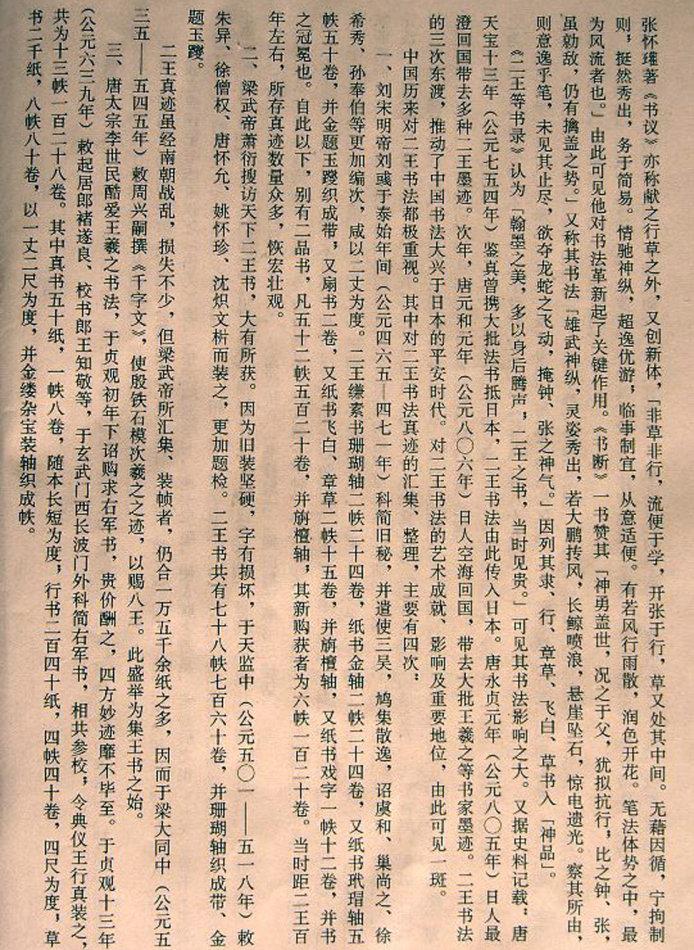 张怀瓘著《书议》亦称献之行草之外，又创新体，「非草非行，流便于学，开张于行，草又处其中间。无藉因循，宁拘制
则，挺然秀出，务于简易。情驰神纵，超逸优游，临事制宜，从意适便。有若风行雨散，润色开花。笔法体势之中，最
为风流者也。」由此可见他对书法革新起了关键作用。《书断》一书赞其「神勇盖世，况之于父，犹拟抗行；比之钟、张，
虽勍敌，仍有擒盖之势。」又称其书法「雄武神纵，灵姿秀出，若大鹏抟风，长鲸喷浪，悬崖坠石，惊电遗光。察其所由，
则意逸乎笔，未见其止尽，欲夺龙蛇之飞动，掩钟、张之神气。」因列其隶、行、章草、飞白、草书入「神品」。
《二王等书录》认为「翰墨之美，多以身后腾声；二王之书，当时见贵。」可见其书法影响之大。又据史料记载：唐
天宝十三年（公元七五四年）鉴真曾携大批法书抵日本，二王书法由此传入日本。唐永贞元年（公元八〇五年）日人最
澄回国带去多种二王墨迹。次年，唐元和元年（公元八〇六年）日人空海回国，带去大批王羲之等书家墨迹。二王书法
的三次东渡，推动了中国书法大兴于日本的平安时代。对二王书法的艺术成就、影响及重要地位，由此可见一斑。
中国历来对二王书法都极重视。其中对二王书法真迹的汇集、整理，主要有四次：
一、刘宋明帝刘彧于泰始年间（公元四六五—四七一年）科简旧秘，并遣使三吴，鸠集散逸，诏虞和、巢尚之、徐
希秀、孙奉伯等更加编次，咸以二丈为度。二王缣素书珊瑚轴二帙二十四卷，纸书金轴二帙二十四卷，又纸书玳瑁轴五
帙五十卷，并金题玉躞织成带，又扇书二卷，又纸书飞白、章草二帙十五卷，并旃檀轴，又纸书戏字一帙十二卷，并书
之冠冕也。自此以下，别有二品书，凡五十二帙五百二十卷，并旃檀轴；其新购获者为六帙一百二十卷。当时距二王百
年左右，所存真迹数量众多，恢宏壮观。
二、梁武帝萧衍搜访天下二王书，大有所获。因为旧装坚硬，字有损坏，于天监中（公元五〇一——五一八年）敕
朱异、徐僧权、唐怀允、姚怀珍、沈炽文析而装之，更加题检。二王书共有七十八帙七百六十卷，并珊瑚轴织成带，金
题玉躞。
二王真迹虽经南朝战乱，损失不少，但梁武帝所汇集、装帧者，仍合一万五千余纸之多，因而于梁大同中（公元五
三五——五四五年）敕周兴嗣撰《千字文》，使殷铁石模次羲之之迹，以赐八王。此盛举为集王书之始。
三、唐太宗李世民酷爱王羲之书法，于贞观初年下诏购求右军书，贵价酬之，四方妙迹靡不毕至。于贞观十三年
（公元六三九年）敕起居郎褚遂良、校书郎王知敬等，于玄武门西长波门外科简右军书，相共参校；令典仪王行真装之，
共为十三帙一百二十八卷。其中真书五十纸，一帙八卷，随本长短为度；行书二百四十纸，四帙四十卷，四尺为度；草
书二千纸，八帙八十卷，以一丈二尺为度，并金缕杂宝装轴织成帙。